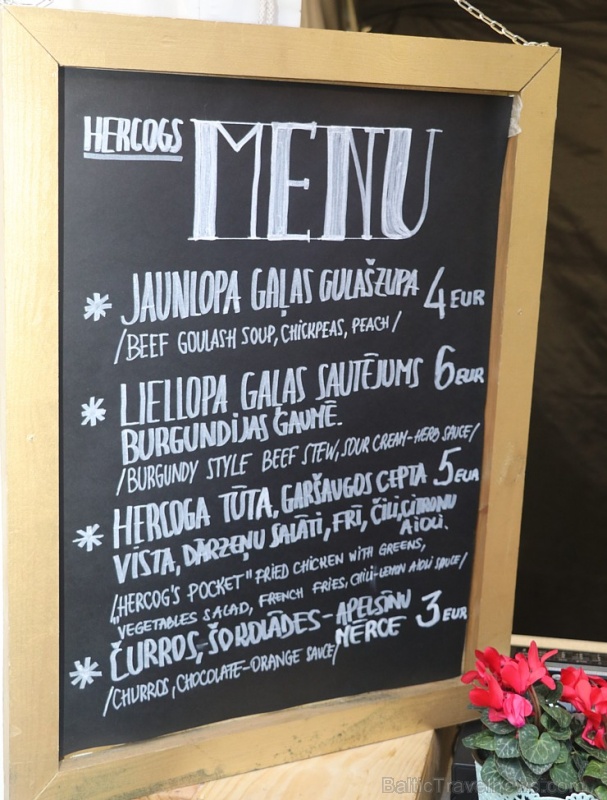 HERCOGS MENU
* JAUNLOPA GAĻAS GULAŠZUPA 4 EUR
/BEEF GOULASH SOUP, CHICKPEAS, PEACH/
* LIELLOPA GAĻAS SAUTĒJUMS 6 EUR
BURGUNDIJAS GAUMĒ.
/BURGUNDY STYLE BEEF STEW, SOUR CREAM-HERB SAUCE/
* HERCOGA TŪTA, GARŠAUGOS CEPTA 5 EUR
VISTA, DĀRZEŅU SALĀTI, FRĪ, ČILI, CITRONU
AIOLI.
/"HERCOG'S POCKET" FRIED CHICKEN WITH GREENS,
VEGETABLES SALAD, FRENCH FRIES, CHILI-LEMON AIOLI SAUCE/
* ČURROS, ŠOKOLĀDES-APELSĪNU 3 EUR
MĒRCE
/CHURROS, CHOCOLATE-ORANGE SAUCE/